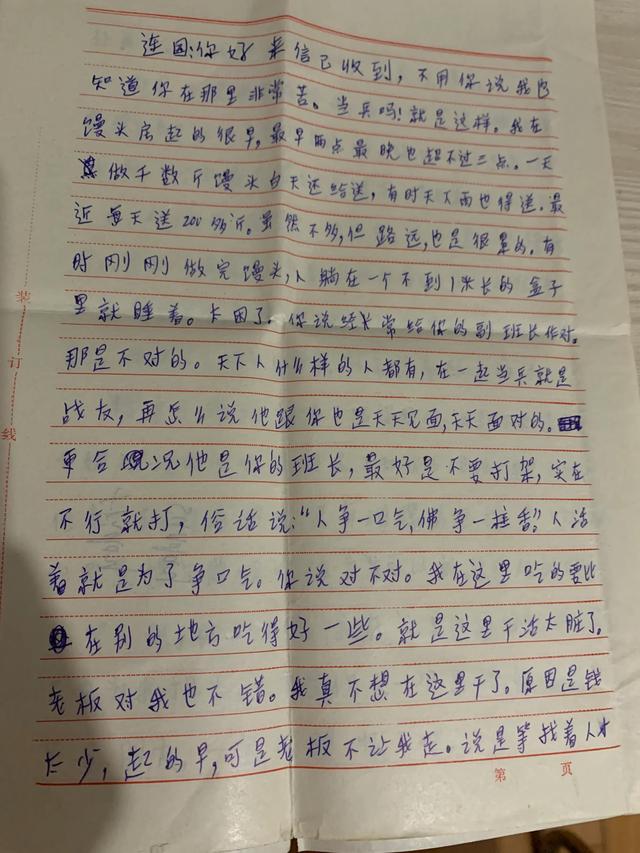 连国:你好 来信已收到，不用你说我也
知道你在那里非常苦。当兵吗!就是这样。我在
馒头房起的很早，最早两点最晚也超不过三点。一天
做千数斤馒头白天还给送，有时天下雨也得送.最
近每天送200多斤。虽然不多，但路远，也是很累的.有
时刚刚做完馒头，人躺在一个不到1米长的盒子
里就睡着。太困了。你说经常给你的副班长作对.
那是不对的。天下人什么样的人都有，在一起当兵就是
战友，再怎么说他跟你也是天天见面，天天面对的。
更合况他是你的班长，最好是不要打架，实在
不行就打，俗话说:“人争一口气,佛争一柱香”。人活
着就是为了争口气。你说对不对。我在这里吃的要比
在别的地方吃得好一些。就是这里干活太脏了。
老板对我也不错。我真不想在这里干了。原因是钱
太少，起的早，可是老板不让我走。说是等找着人才
装
订
线
第 页